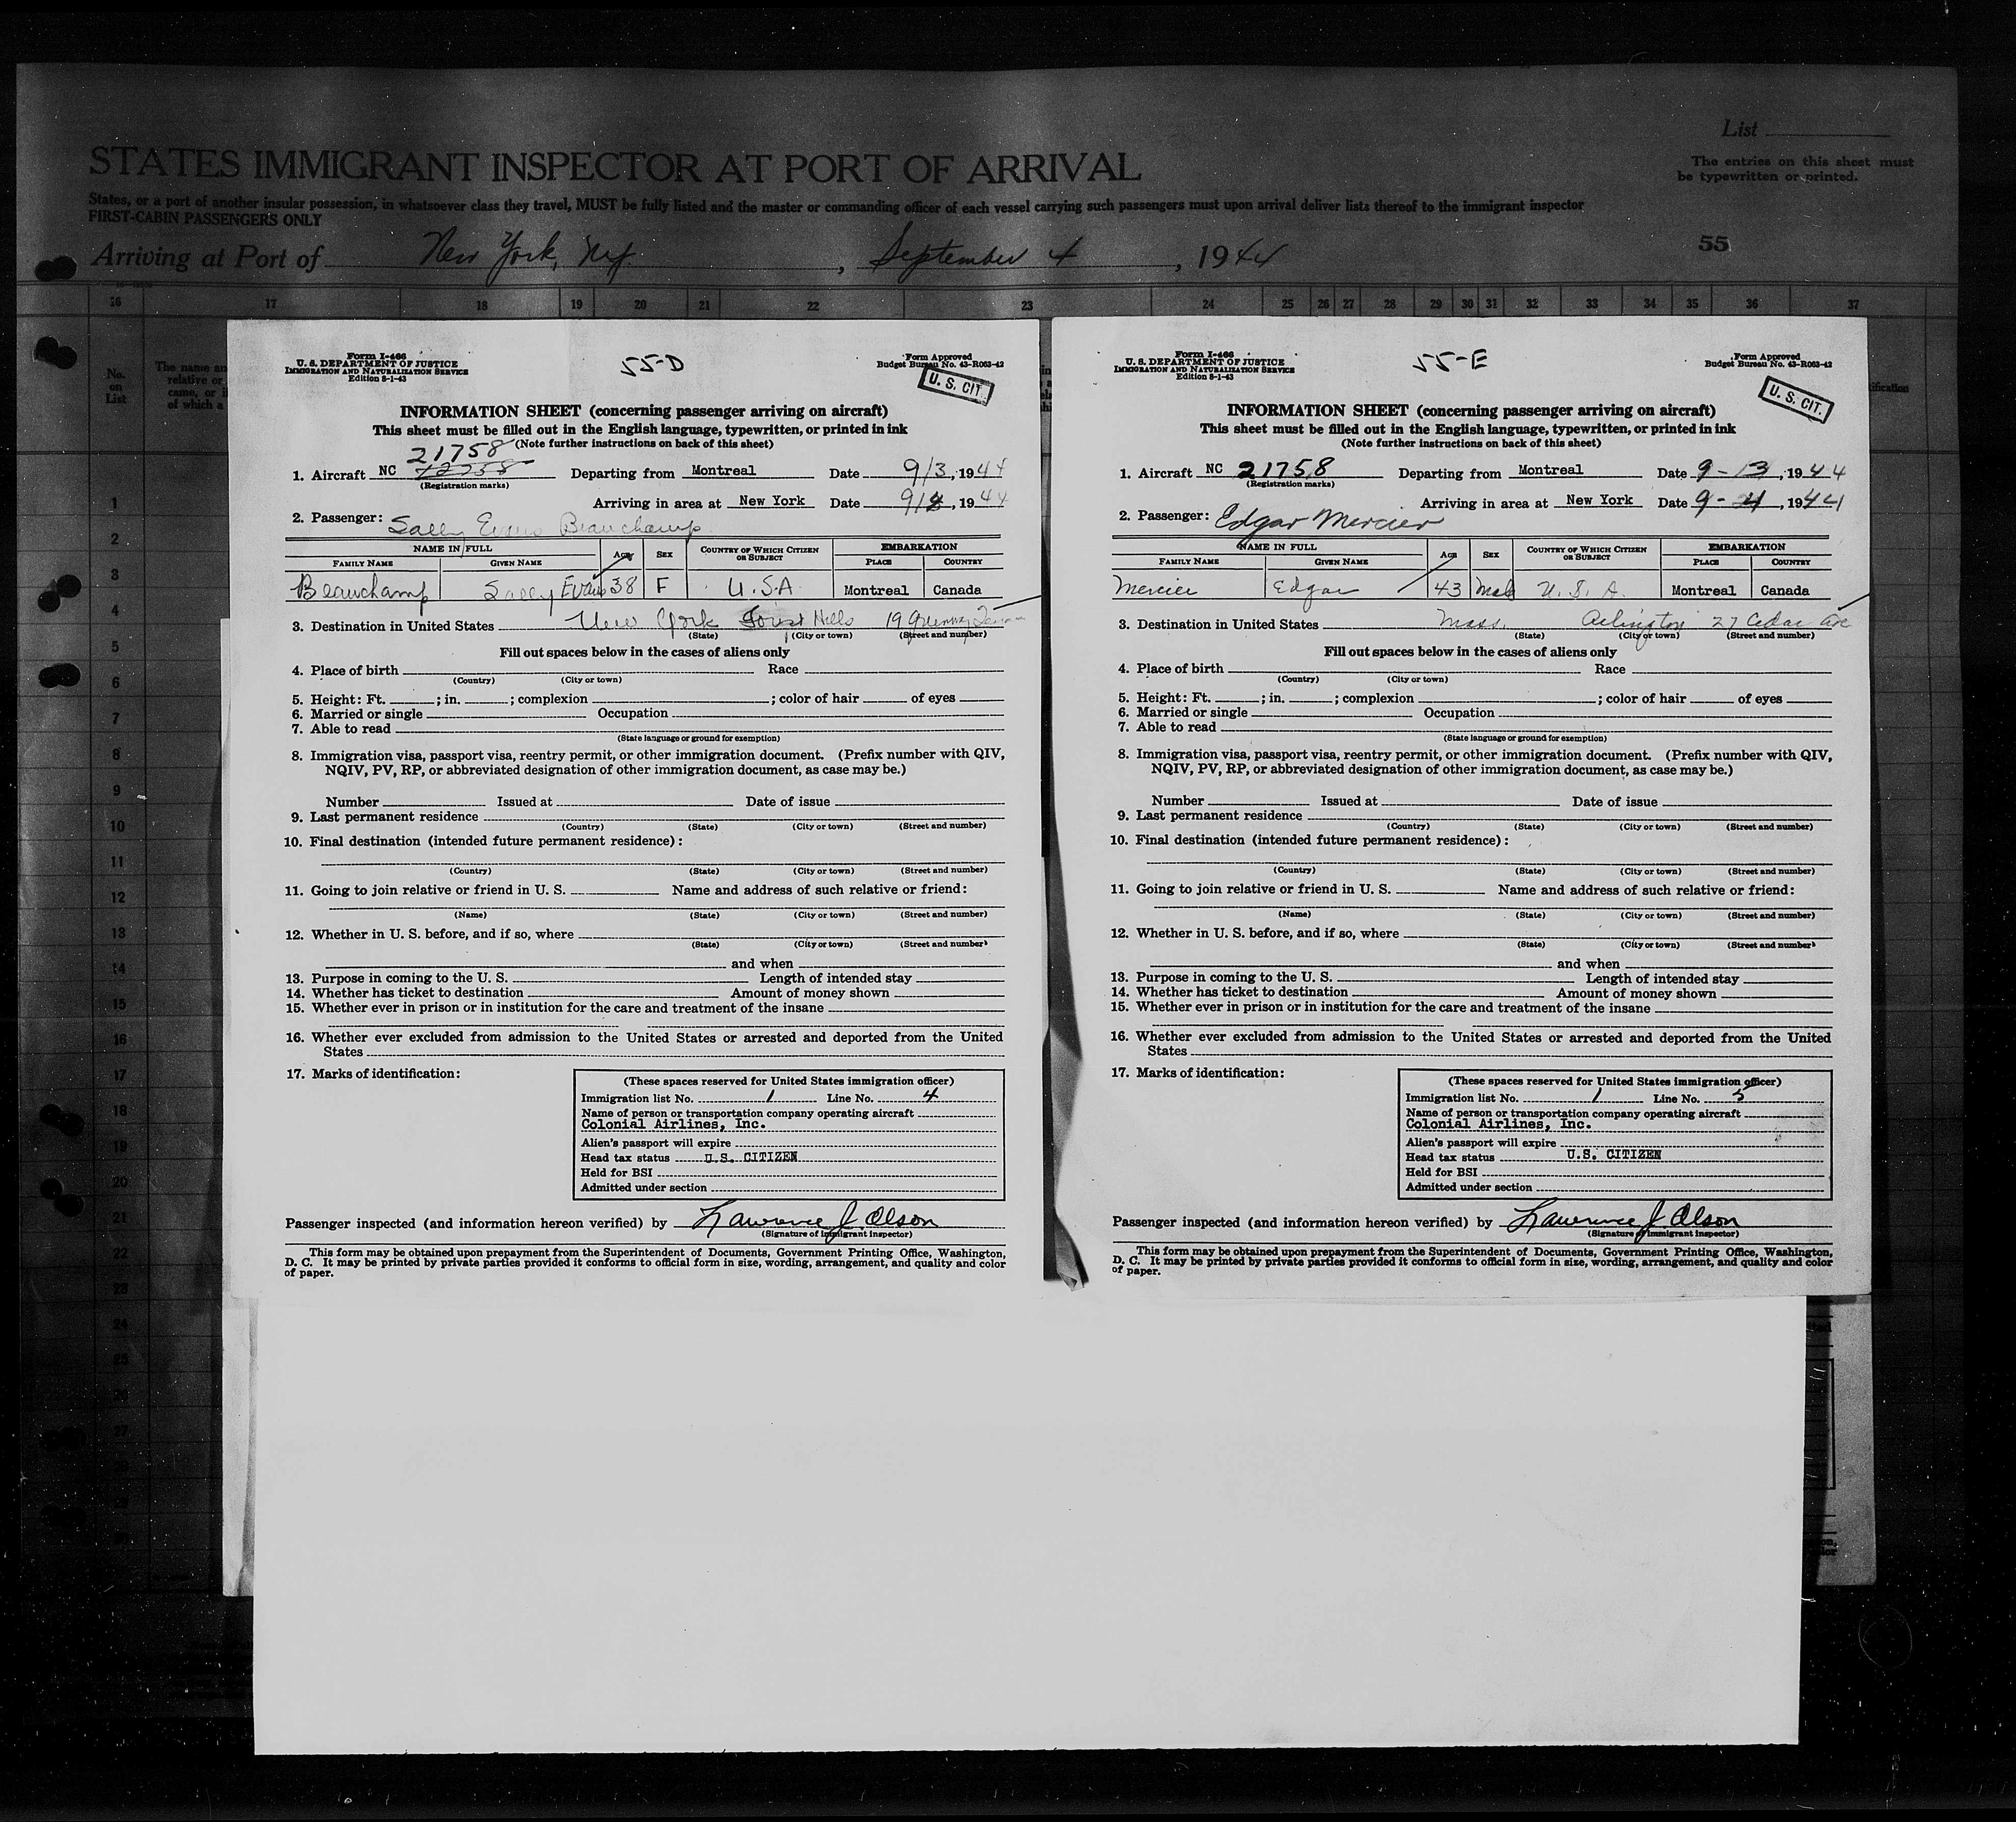 List
STATES IMMIGRANT INSPECTOR AT PORT OF ARRIVAL
The entries on this sheet must
be typewritten or printed.
States, or a port of another insular possession, in whatsoever class they travel, MUST be fully listed and the master or commanding officer of each vessel carrying such passengers must upon arrival deliver lists thereof to the immigrant inspector
FIRST-CABIN PASSENGERS ONLY
55
Arriving at Port of New York, N.Y. , September 4 , 1944
16 17 18 19 20 21 22 23 24 25 26 27 28 29 30 31 32 33 34 35 36 37
No.
on
List
The name an
relative or
came, or i
of which a
1
2
3
4
5
6
7
8
9
10
11
12
13
14
15
16
17
18
19
20
21
22
23
24
25
26
27
Form I-466
U. S. DEPARTMENT OF JUSTICE
IMMIGRATION AND NATURALIZATION SERVICE
Edition 8-1-43
55-D
Form Approved
Budget Bureau No. 43-R063-42
U. S. CIT.
INFORMATION SHEET (concerning passenger arriving on aircraft)
This sheet must be filled out in the English language, typewritten, or printed in ink
(Note further instructions on back of this sheet)
21758
1. Aircraft NC Departing from Montreal Date 9/3, 1944
(Registration marks)
Arriving in area at New York Date 9/4, 1944
2. Passenger: Sally Evans Beauchamp
NAME IN FULL AGE SEX COUNTRY OF WHICH CITIZEN OR SUBJECT EMBARKATION
FAMILY NAME GIVEN NAME PLACE COUNTRY
Beauchamp Sally Evans 38 F U.S.A. Montreal Canada
3. Destination in United States New York Forest Hills 19
(State) (City or town) (Street and number)
Fill out spaces below in the cases of aliens only
4. Place of birth Race
(Country) (City or town)
5. Height: Ft. ; in. ; complexion ; color of hair of eyes
6. Married or single Occupation
7. Able to read
(State language or ground for exemption)
8. Immigration visa, passport visa, reentry permit, or other immigration document. (Prefix number with QIV,
NQIV, PV, RP, or abbreviated designation of other immigration document, as case may be.)
Number Issued at Date of issue
9. Last permanent residence
(Country) (State) (City or town) (Street and number)
10. Final destination (intended future permanent residence):
(Country) (State) (City or town) (Street and number)
11. Going to join relative or friend in U. S. Name and address of such relative or friend:
(Name) (State) (City or town) (Street and number)
12. Whether in U. S. before, and if so, where
(State) (City or town) (Street and number)
and when
13. Purpose in coming to the U. S. Length of intended stay
14. Whether has ticket to destination Amount of money shown
15. Whether ever in prison or in institution for the care and treatment of the insane
16. Whether ever excluded from admission to the United States or arrested and deported from the United
States
17. Marks of identification:
(These spaces reserved for United States immigration officer)
Immigration list No. 1 Line No. 4
Name of person or transportation company operating aircraft
Colonial Airlines, Inc.
Alien's passport will expire
Head tax status U.S. CITIZEN
Held for BSI
Admitted under section
Passenger inspected (and information hereon verified) by Lawrence J. Olson
(Signature of immigrant inspector)
This form may be obtained upon prepayment from the Superintendent of Documents, Government Printing Office, Washington,
D. C. It may be printed by private parties provided it conforms to official form in size, wording, arrangement, and quality and color
of paper.
Form I-466
U. S. DEPARTMENT OF JUSTICE
IMMIGRATION AND NATURALIZATION SERVICE
Edition 8-1-43
55-E
Form Approved
Budget Bureau No. 43-R063-42
U. S. CIT.
INFORMATION SHEET (concerning passenger arriving on aircraft)
This sheet must be filled out in the English language, typewritten, or printed in ink
(Note further instructions on back of this sheet)
1. Aircraft NC 21758 Departing from Montreal Date 9-3, 1944
(Registration marks)
Arriving in area at New York Date 9-4, 1944
2. Passenger: Edgar Mercier
NAME IN FULL AGE SEX COUNTRY OF WHICH CITIZEN OR SUBJECT EMBARKATION
FAMILY NAME GIVEN NAME PLACE COUNTRY
Mercier Edgar 43 Male U. S. A. Montreal Canada
3. Destination in United States Mass. Arlington 27 Cedar Ave
(State) (City or town) (Street and number)
Fill out spaces below in the cases of aliens only
4. Place of birth Race
(Country) (City or town)
5. Height: Ft. ; in. ; complexion ; color of hair of eyes
6. Married or single Occupation
7. Able to read
(State language or ground for exemption)
8. Immigration visa, passport visa, reentry permit, or other immigration document. (Prefix number with QIV,
NQIV, PV, RP, or abbreviated designation of other immigration document, as case may be.)
Number Issued at Date of issue
9. Last permanent residence
(Country) (State) (City or town) (Street and number)
10. Final destination (intended future permanent residence):
(Country) (State) (City or town) (Street and number)
11. Going to join relative or friend in U. S. Name and address of such relative or friend:
(Name) (State) (City or town) (Street and number)
12. Whether in U. S. before, and if so, where
(State) (City or town) (Street and number)
and when
13. Purpose in coming to the U. S. Length of intended stay
14. Whether has ticket to destination Amount of money shown
15. Whether ever in prison or in institution for the care and treatment of the insane
16. Whether ever excluded from admission to the United States or arrested and deported from the United
States
17. Marks of identification:
(These spaces reserved for United States immigration officer)
Immigration list No. 1 Line No. 5
Name of person or transportation company operating aircraft
Colonial Airlines, Inc.
Alien's passport will expire
Head tax status U.S. CITIZEN
Held for BSI
Admitted under section
Passenger inspected (and information hereon verified) by Lawrence J. Olson
(Signature of immigrant inspector)
This form may be obtained upon prepayment from the Superintendent of Documents, Government Printing Office, Washington,
D. C. It may be printed by private parties provided it conforms to official form in size, wording, arrangement, and quality and color
of paper.